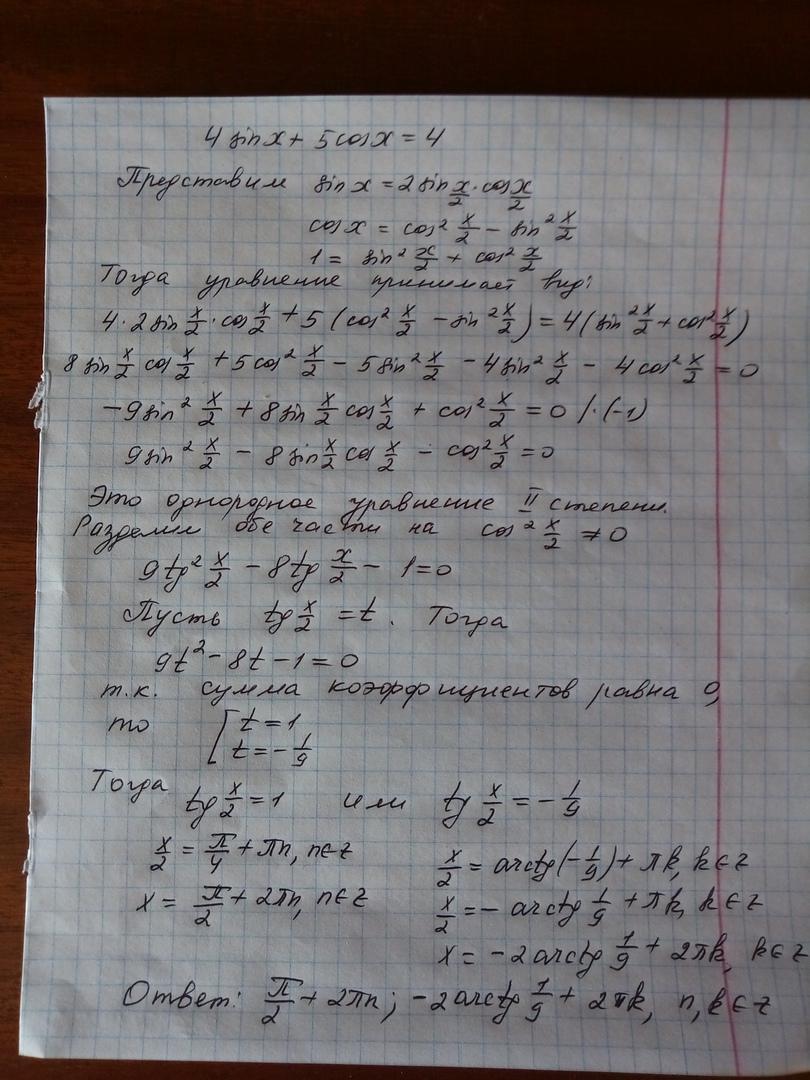 4 sin x + 5 cos x = 4
Представим sin x = 2 sin x/2 · cos x/2
cos x = cos² x/2 − sin² x/2
1 = sin² x/2 + cos² x/2
Тогда уравнение принимает вид:
4 · 2 sin x/2 · cos x/2 + 5 (cos² x/2 − sin² x/2) = 4 (sin² x/2 + cos² x/2)
8 sin x/2 cos x/2 + 5 cos² x/2 − 5 sin² x/2 − 4 sin² x/2 − 4 cos² x/2 = 0
−9 sin² x/2 + 8 sin x/2 cos x/2 + cos² x/2 = 0 /·(−1)
9 sin² x/2 − 8 sin x/2 cos x/2 − cos² x/2 = 0
Это однородное уравнение II степени.
Разделим обе части на cos² x/2 ≠ 0
9 tg² x/2 − 8 tg x/2 − 1 = 0
Пусть tg x/2 = t. Тогда
9t² − 8t − 1 = 0
т.к. сумма коэффициентов равна 0,
то [ t = 1
t = −1/9
Тогда tg x/2 = 1 или tg x/2 = −1/9
x/2 = π/4 + πn, n∈z
x = π/2 + 2πn, n∈z
x/2 = arctg(−1/9) + πk, k∈z
x/2 = − arctg 1/9 + πk, k∈z
x = −2 arctg 1/9 + 2πk, k∈z
Ответ: π/2 + 2πn; −2 arctg 1/9 + 2πk, n, k∈z